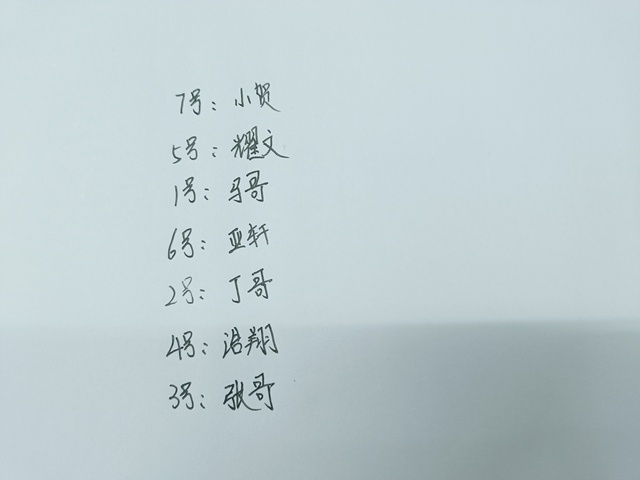 7号：小贺
5号：耀文
1号：马哥
6号：亚轩
2号：丁哥
4号：浩翔
3号：张哥